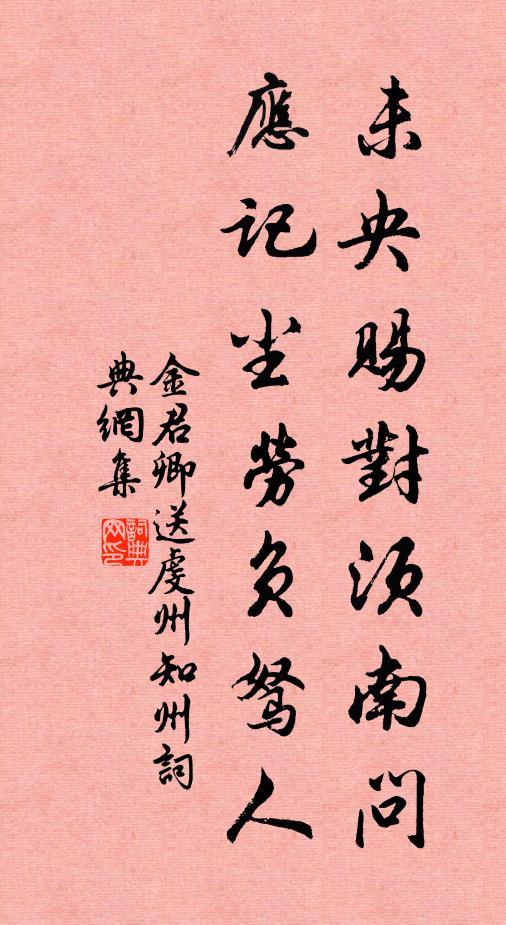 未央賜對須南問
應記坐勞負駑人
金君卿送虔州知州詞
典網集
詞典
网印